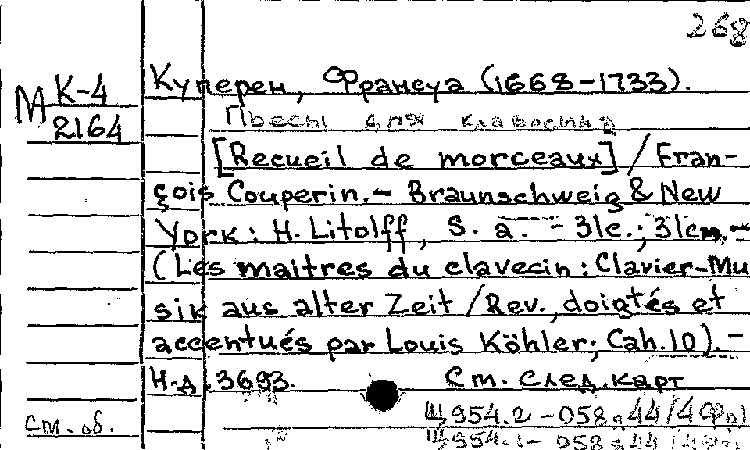 268
М К-4
2164
Куперен, Франсуа (1668-1733).
Пьесы для клавесина
[Recueil de morceaux] / Fran-
çois Couperin. - Braunschweig & New
York : H. Litolff, S. a. - 31c.; 31cm. -
(Les maitres du clavecin : Clavier-Mu
sik aus alter Zeit / Rev., doigtés et
accentués par Louis Köhler; Cah.10). -
Н.д. 3693. См. след. карт
Щ954.2-058я44/4(Фр)
см. об.